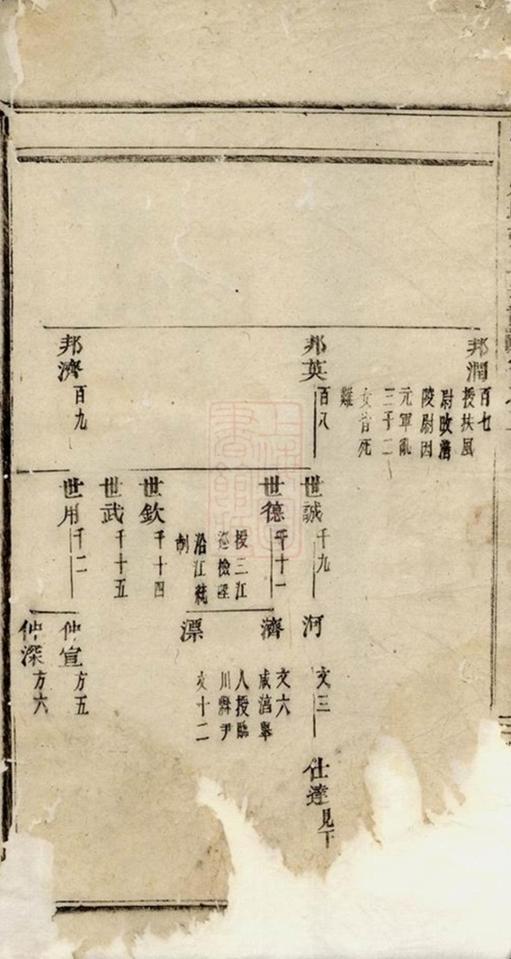 邦潤
百七
授扶風
尉改
陵尉因
元軍亂
三子二
女皆死
難
邦英
百八
邦濟
百九
世誠
千九
世德
千十一
授三江
巡檢
沿江
制
世欽
千十四
世武
千十五
世用
千二
河
文三
濟
文六
咸淳舉
人授臨
川縣尹
漂
文十二
仲宣
方五
仲深
方六
仕達
見下